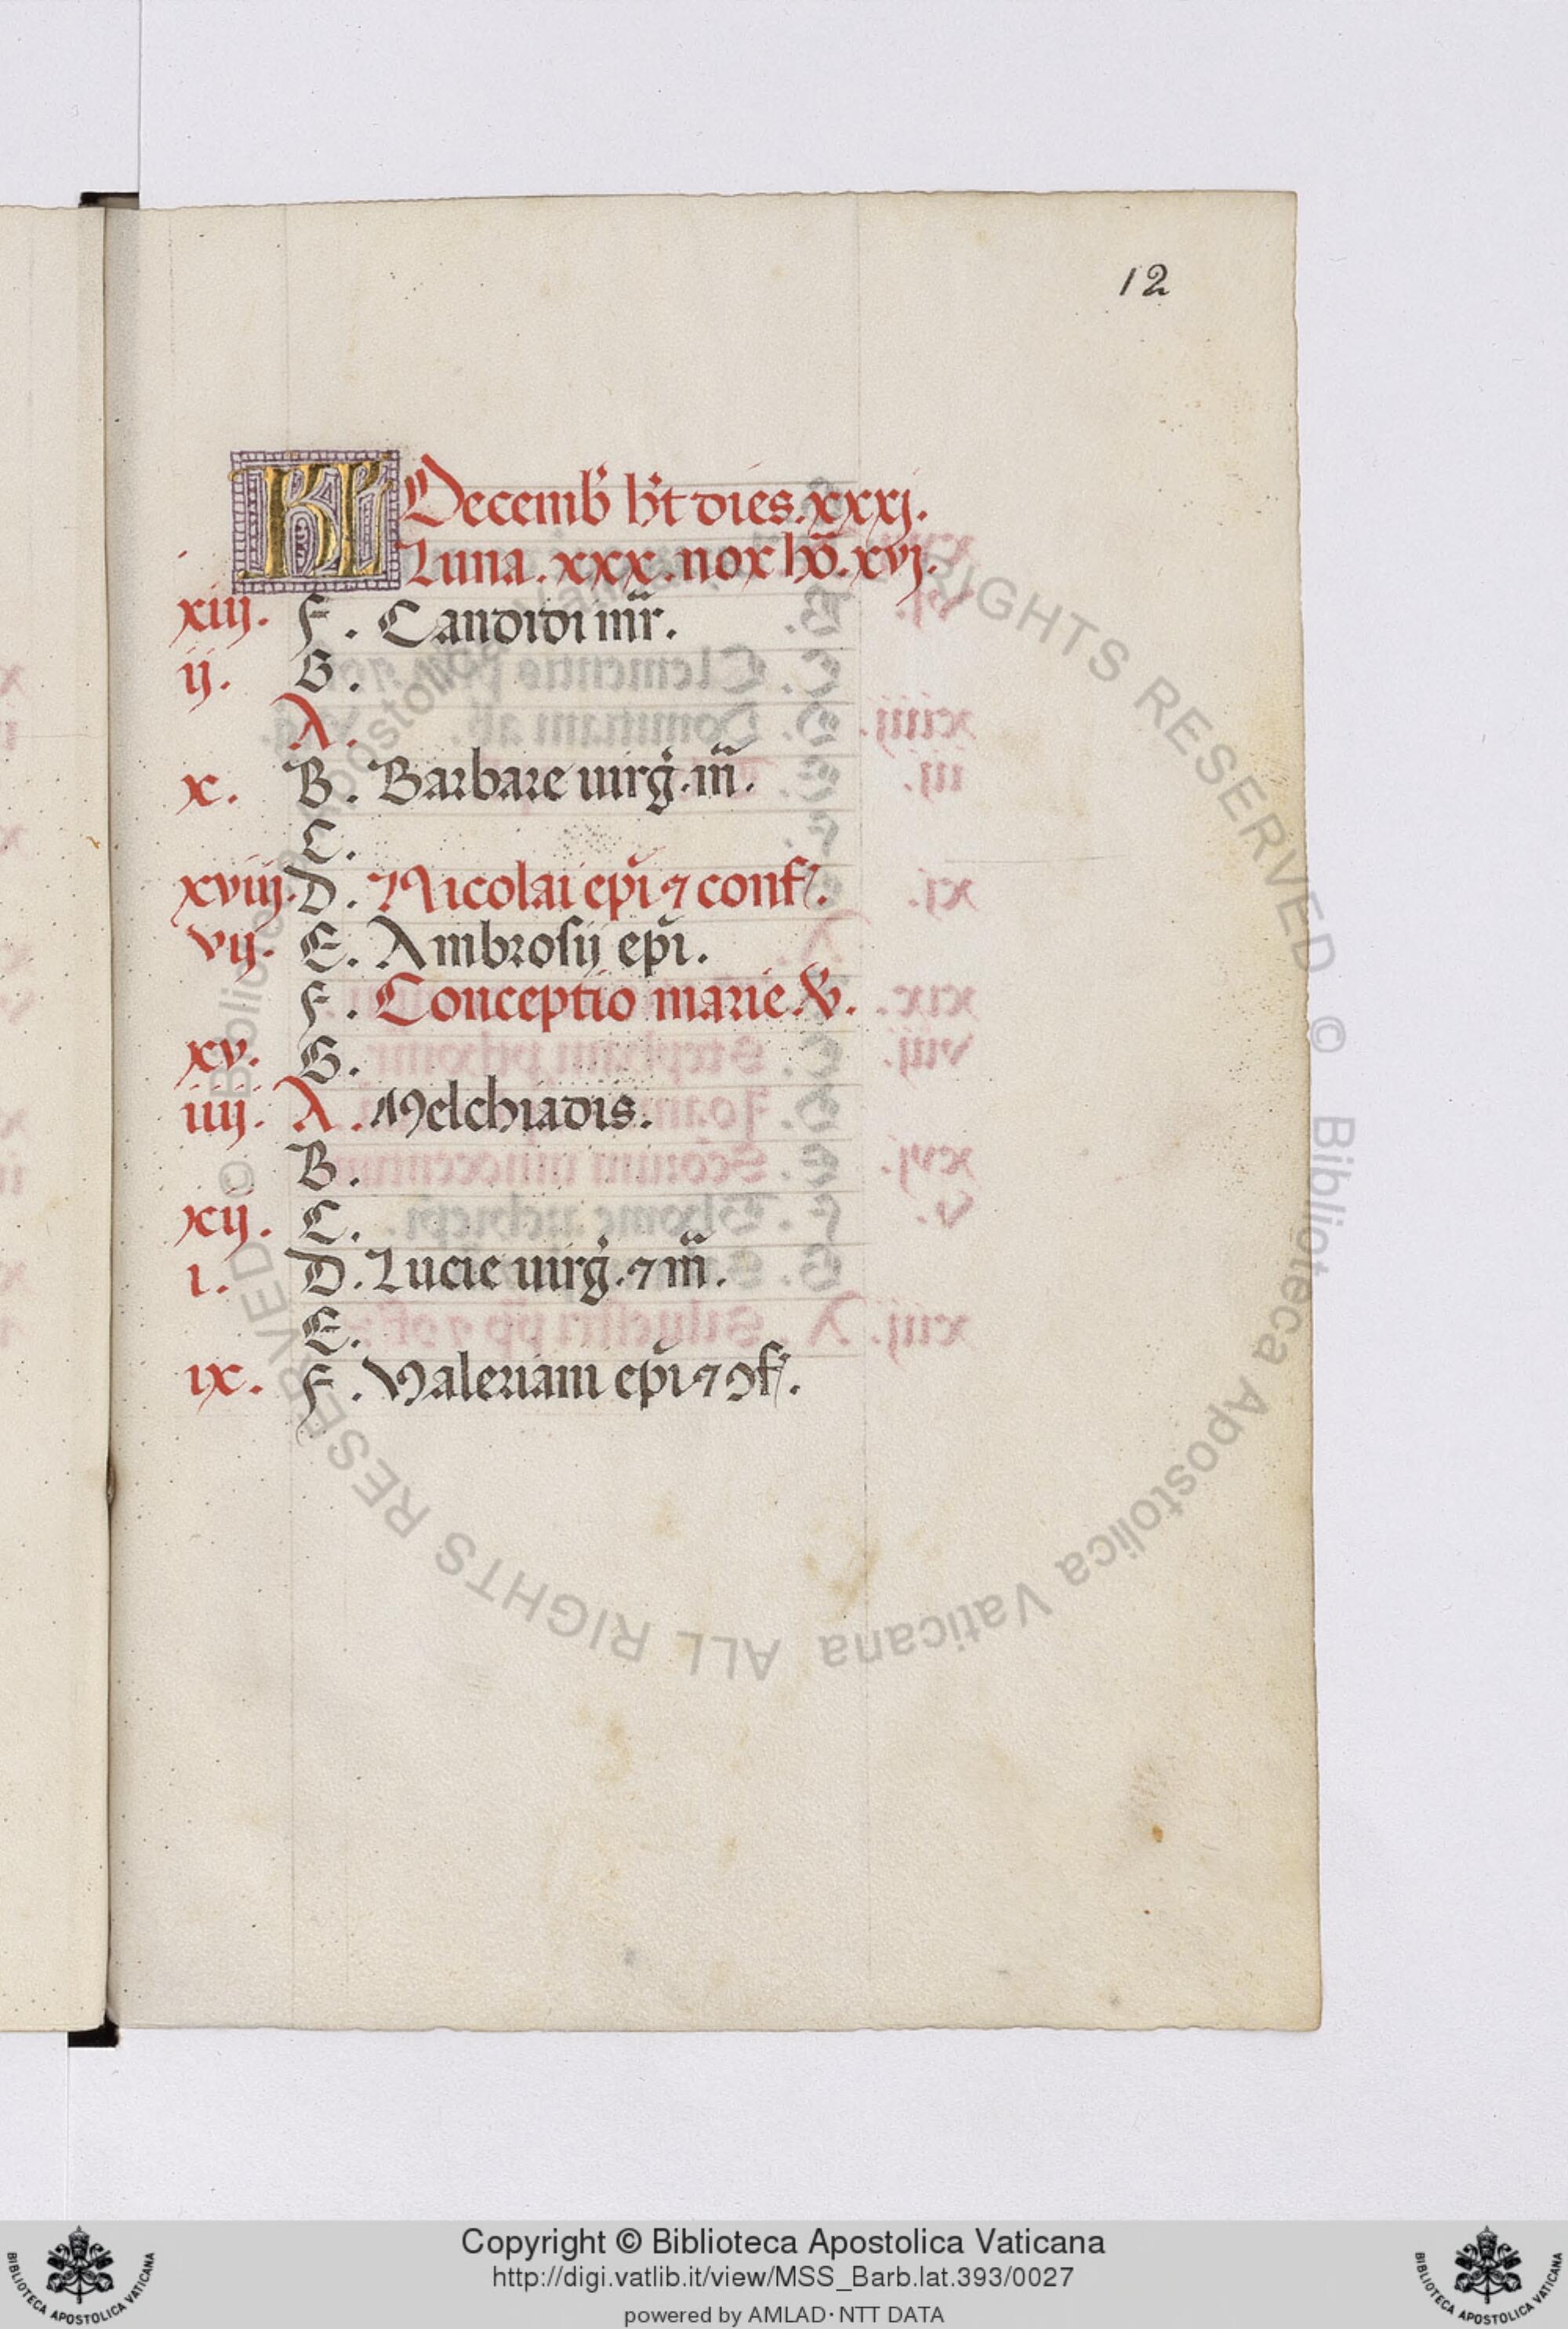 12
KL Decemb̃ h̃t dies. xxxj.
Luna. xxx. nox ho᷑. xvj.
xiij. F. Candidi mr̃.
ij. G.
A.
x. B. Barbare uirg̃. m̃.
C.
xviij. D. Nicolai ep̃i ⁊ conf.
vij. E. Ambrosij ep̃i.
F. Conceptio marie. V̾.
xv. G.
iiij. A. Melchiadis.
B.
xij. C.
i. D. Lucie uirg̃. ⁊ m̃.
E.
ix. F. Valeriani ep̃i ⁊ ꝯf.
© Biblioteca Apostolica Vaticana ALL RIGHTS RESERVED
Copyright © Biblioteca Apostolica Vaticana
http://digi.vatlib.it/view/MSS_Barb.lat.393/0027
powered by AMLAD · NTT DATA
BIBLIOTECA APOSTOLICA VATICANA
BIBLIOTECA APOSTOLICA VATICANA